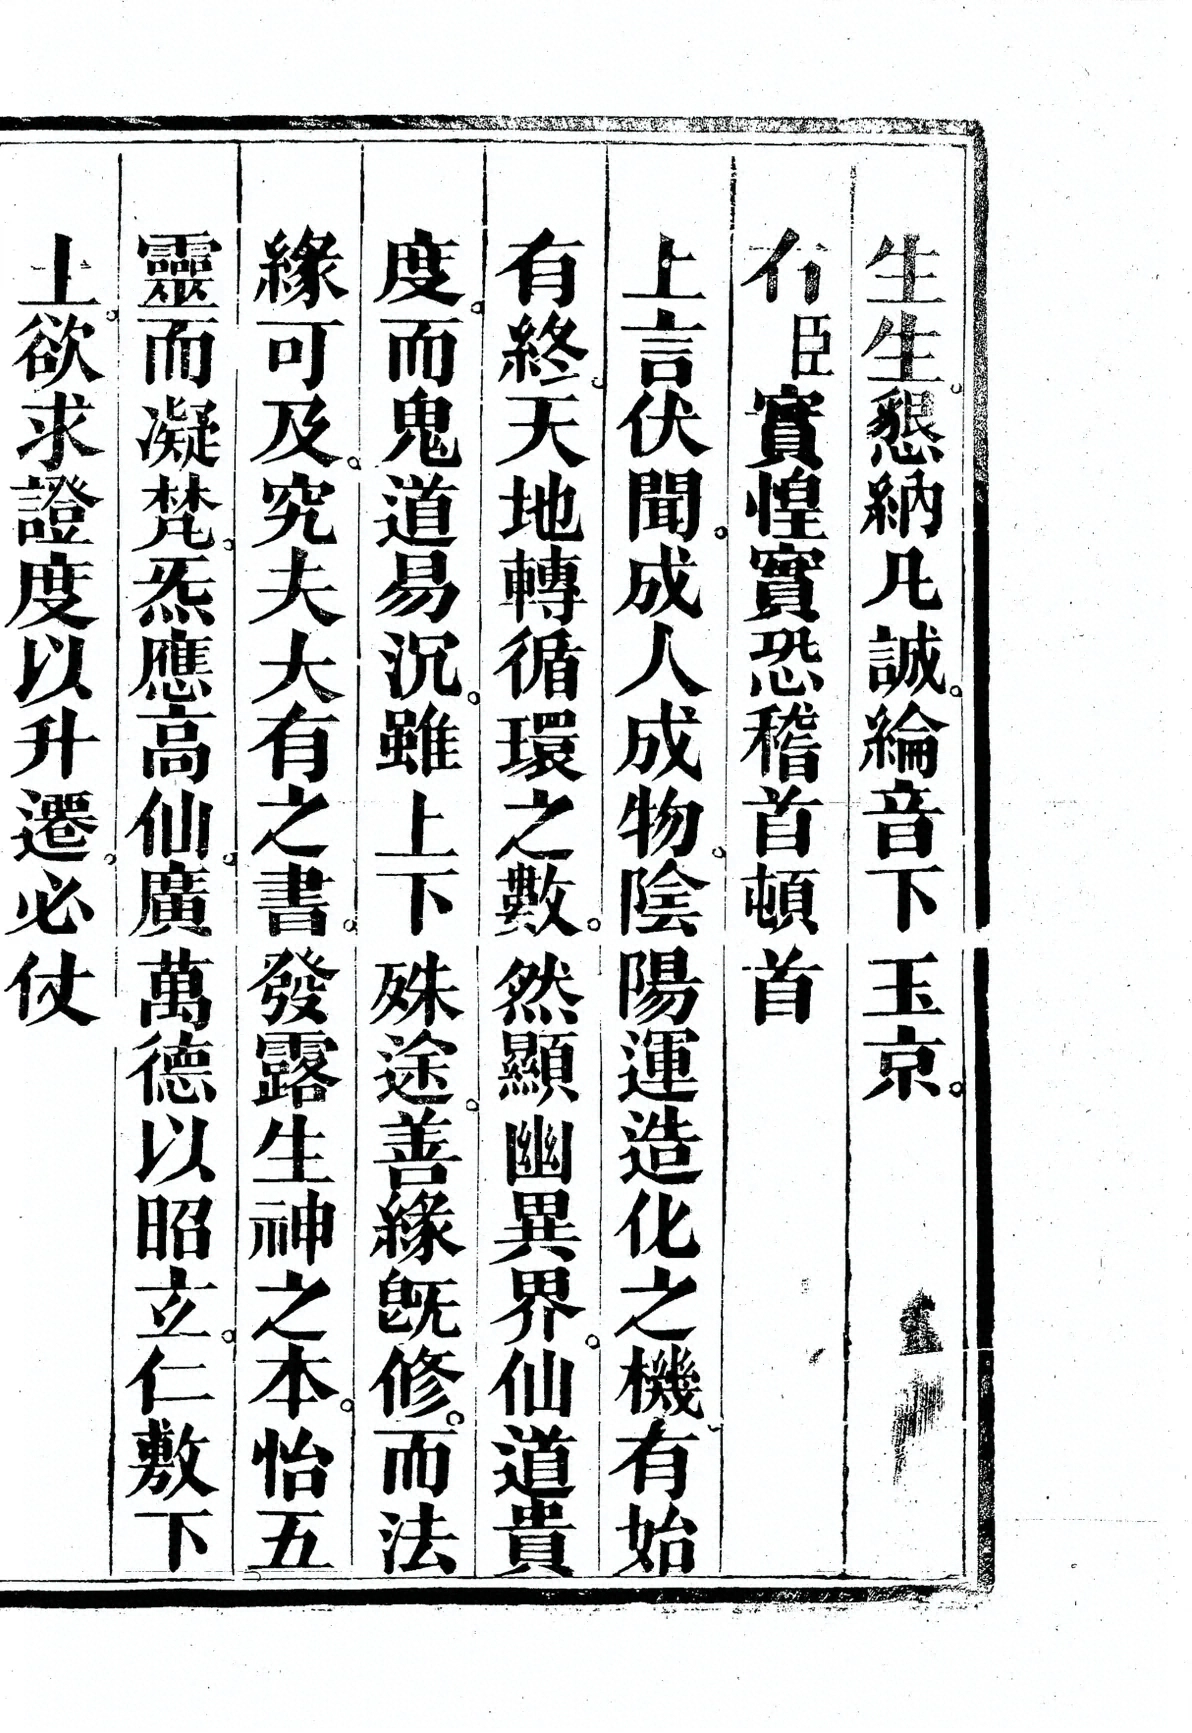 生生。懇納凡誠。綸音下玉京。
臣實惶實恐稽首頓首
上言伏聞。成人成物。陰陽運造化之機。有始
有終。天地轉循環之數。然顯幽異界。仙道貴
度。而鬼道易沉。雖上下殊途。善緣旣修。而法
緣可及。究夫大有之書。發露生神之本。怡五
靈而凝梵。炁應高仙。廣萬德以昭玄。仁敷下
土。欲求證度以升遷。必仗